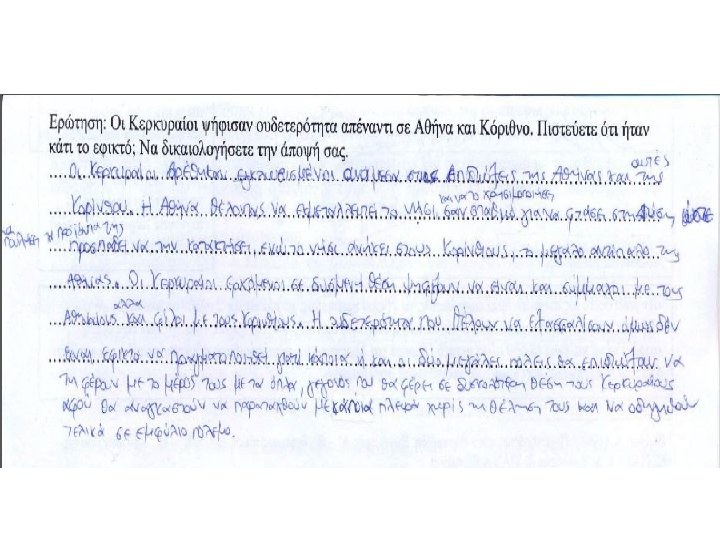 Ερώτηση: Οι Κερκυραίοι ψήφισαν ουδετερότητα απέναντι σε Αθήνα και Κόριθνο. Πιστεύετε ότι ήταν
κάτι το εφικτό; Να δικαιολογήσετε την άποψή σας.
αυτές
Οι Κερκυραίοι βρέθηκαν εγκλωβισμένοι ανάμεσα στις επιδιώξεις της Αθήνας και της
και να το χρησιμοποιήσει
Κορίνθου. Η Αθήνα θέλοντας να εκμεταλλευτεί το νησί σαν σταθμό για να φτάσει στη Δύση ώστε
να πουλήσει τα προϊόντα της
προσπαθεί να την κατακτήσει, ενώ το νησί ανήκει στους Κορίνθιους, το μεγάλο αντίπαλο της
Αθήνας. Οι Κερκυραίοι ερχόμενοι σε δύσμενη θέση ψηφίζουν να είναι και σύμμαχοι με τους
αλλα
Αθηναίους και φίλοι με τους Κορίνθιους. Η ουδετερότητα που θέλουν να εξασφαλίσουν όμως δεν
είναι εφικτό να πραγματοποιηθεί γιατί κάποια ή και οι δύο μεγάλες πόλεις θα επιδιώξουν να
τη φέρουν με το μέρος τους με τα όπλα, γεγονός που θα φέρει σε δυσκολότερη θέση τους Κερκυραίους
αφού θα αναγκαστούν να παραταχθούν με κάποια πλευρά χωρίς τη θέληση τους και να οδηγηθούν
τελικά σε εμφύλιο πόλεμο.